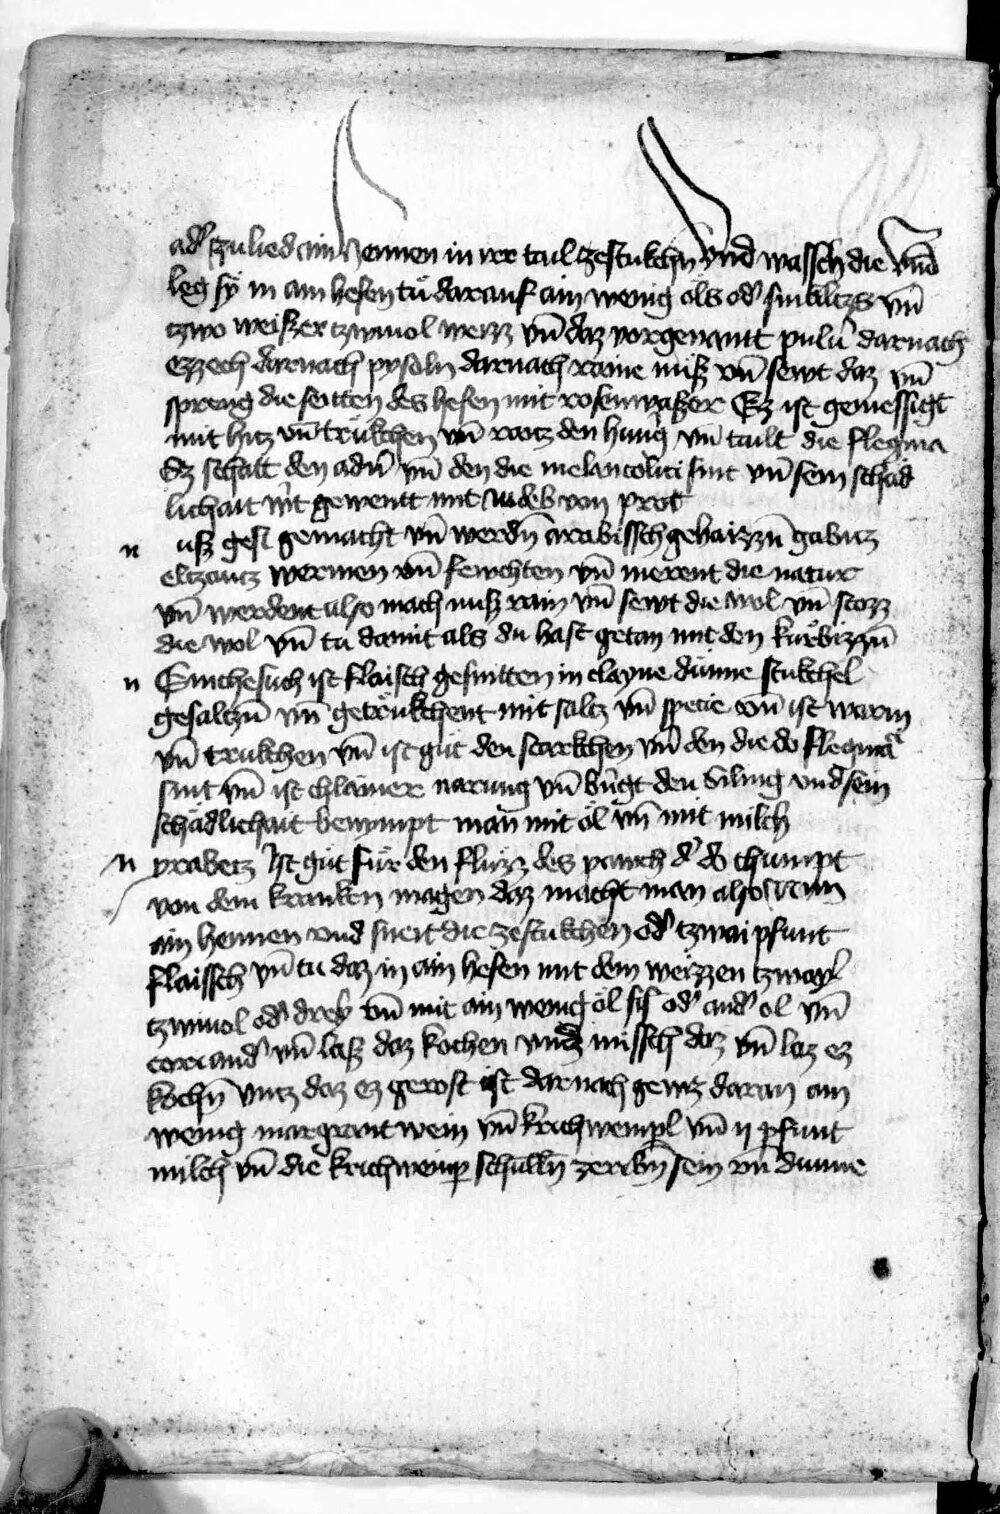 adˀ tzulied ain hennen in irr tail zestukchn vnd wassch die vnd
leg sy in ain hefen tů darauf ain wenig öls odˀ smaltzs vn̄
tzwo weiszer tzwiuol weizz vn̄ daz vorgenantt puluˀ darnach
ezzech darnach pysaln darnach raine nusz vn̄ sewt daz vn̄
spreng die seitten des hefen mit rosenwaszer Ez ist gemessigt
mit hitz vn̄ trukchen vn̄ raitz den hung vn̄ tailt die flegma
Ez schatt den adn̄ vn̄ den die melancolici sint vn̄ sein schad
lichait wˀt gewentt mit von prot
n usz gesl gemacht vn̄ werdn̄ arabissch gehaizzn̄ gabitz
eltzantz wermen vn̄ fewchten vn̄ merent die natur
vn̄ werdent also mach nusz rain vn̄ sewt die wol vn̄ stozz
die wol vn̄ tu damit als du hast getan mit den kürbizzn̄
n Sinchesuch ist flaisch gesnitten in clayne dünne stukchel
gesaltzn̄ vn̄ getrukchent mit saltz vn̄ specie vn̄ ist warm
vn̄ trukchen vn̄ ist gut den starkchen vn̄ den die do flegmaˀ
sint vn̄ ist chlainer narung vn̄ bˀngt den siling vnd sein
schädlichait benympt man mit öl vn̄ mit milch
n yrabetz Ist gůt für den fluzz des pauch dˀ do chumpt
von dem kranken magen daz macht man also nim
ain hennen vnd sneit die zestukchen odˀ tzwai pfunt
flaissch vn̄ tu daz in ain hefen mit dem weizzen tzwayˀ
tzwiuol odˀ drey vn̄ mit ain wenig öl sis odˀ andˀ öl vn̄
coriandˀ vn̄ lasz daz kochen vnd missch daz vn̄ laz ez
kochn̄ vntz daz ez gerost ist darnach gewz daran ain
wenig margrant wein vn̄ krichweinpl vn̄ ij pfunt
milch vn̄ die krichweinp schulln̄ zeribn̄ sein vn̄ dunne